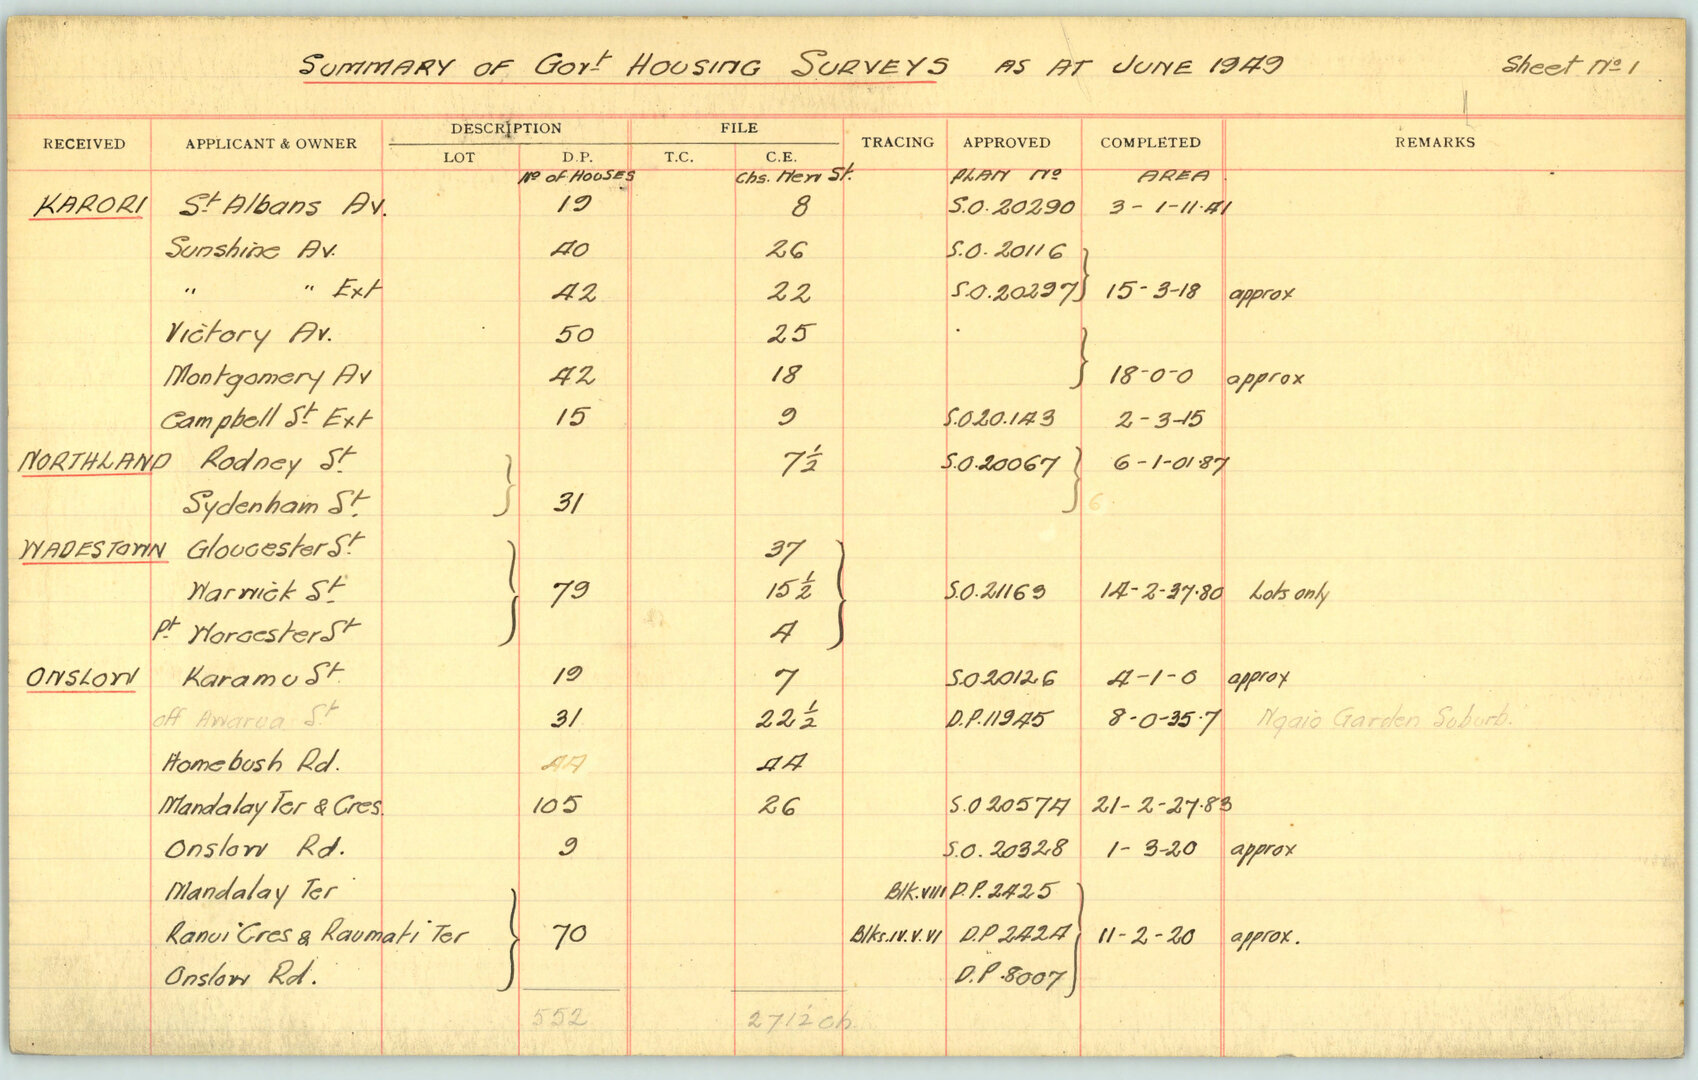 SUMMARY OF Govt HOUSING SURVEYS AS AT JUNE 1949 Sheet No 1
DESCRIPTION FILE
RECEIVED APPLICANT & OWNER TRACING APPROVED COMPLETED REMARKS
LOT D.P. T.C. C.E.
No OF HOUSES Chs. New St. PLAN No AREA
KARORI St Albans Av. 19 8 S.O. 20290 3-1-11.41
Sunshine Av. 40 26 S.O. 20116
" " Ext 42 22 S.O. 20297 15-3-18 approx
Victory Av. 50 25
Montgomery Av 42 18 18-0-0 approx
Campbell St Ext 15 9 S.O 20.143 2-3-15
NORTHLAND Rodney St. 7½ S.O. 20067 6-1-01.87
Sydenham St. 31 6
WADESTOWN Gloucester St. 37
Warwick St. 79 15½ S.O. 21163 14-2-37.80 Lots only
Pt Worcester St 4
ONSLOW Karamu St. 19 7 S.O 20126 4-1-0 approx
off Awarua St 31 22½ D.P. 11945 8-0-35.7 Ngaio Garden Suburb.
Homebush Rd. 44 44
Mandalay Ter & Cres. 105 26 S.O 20574 21-2-27.83
Onslow Rd. 9 S.O. 20328 1-3-20 approx
Mandalay Ter Blk. VIII D.P. 2425
Ranui Cres & Raumati Ter 70 Blks. IV. V. VI D.P 2424 11-2-20 approx.
Onslow Rd. D.P. 8007
552 271½ ch.